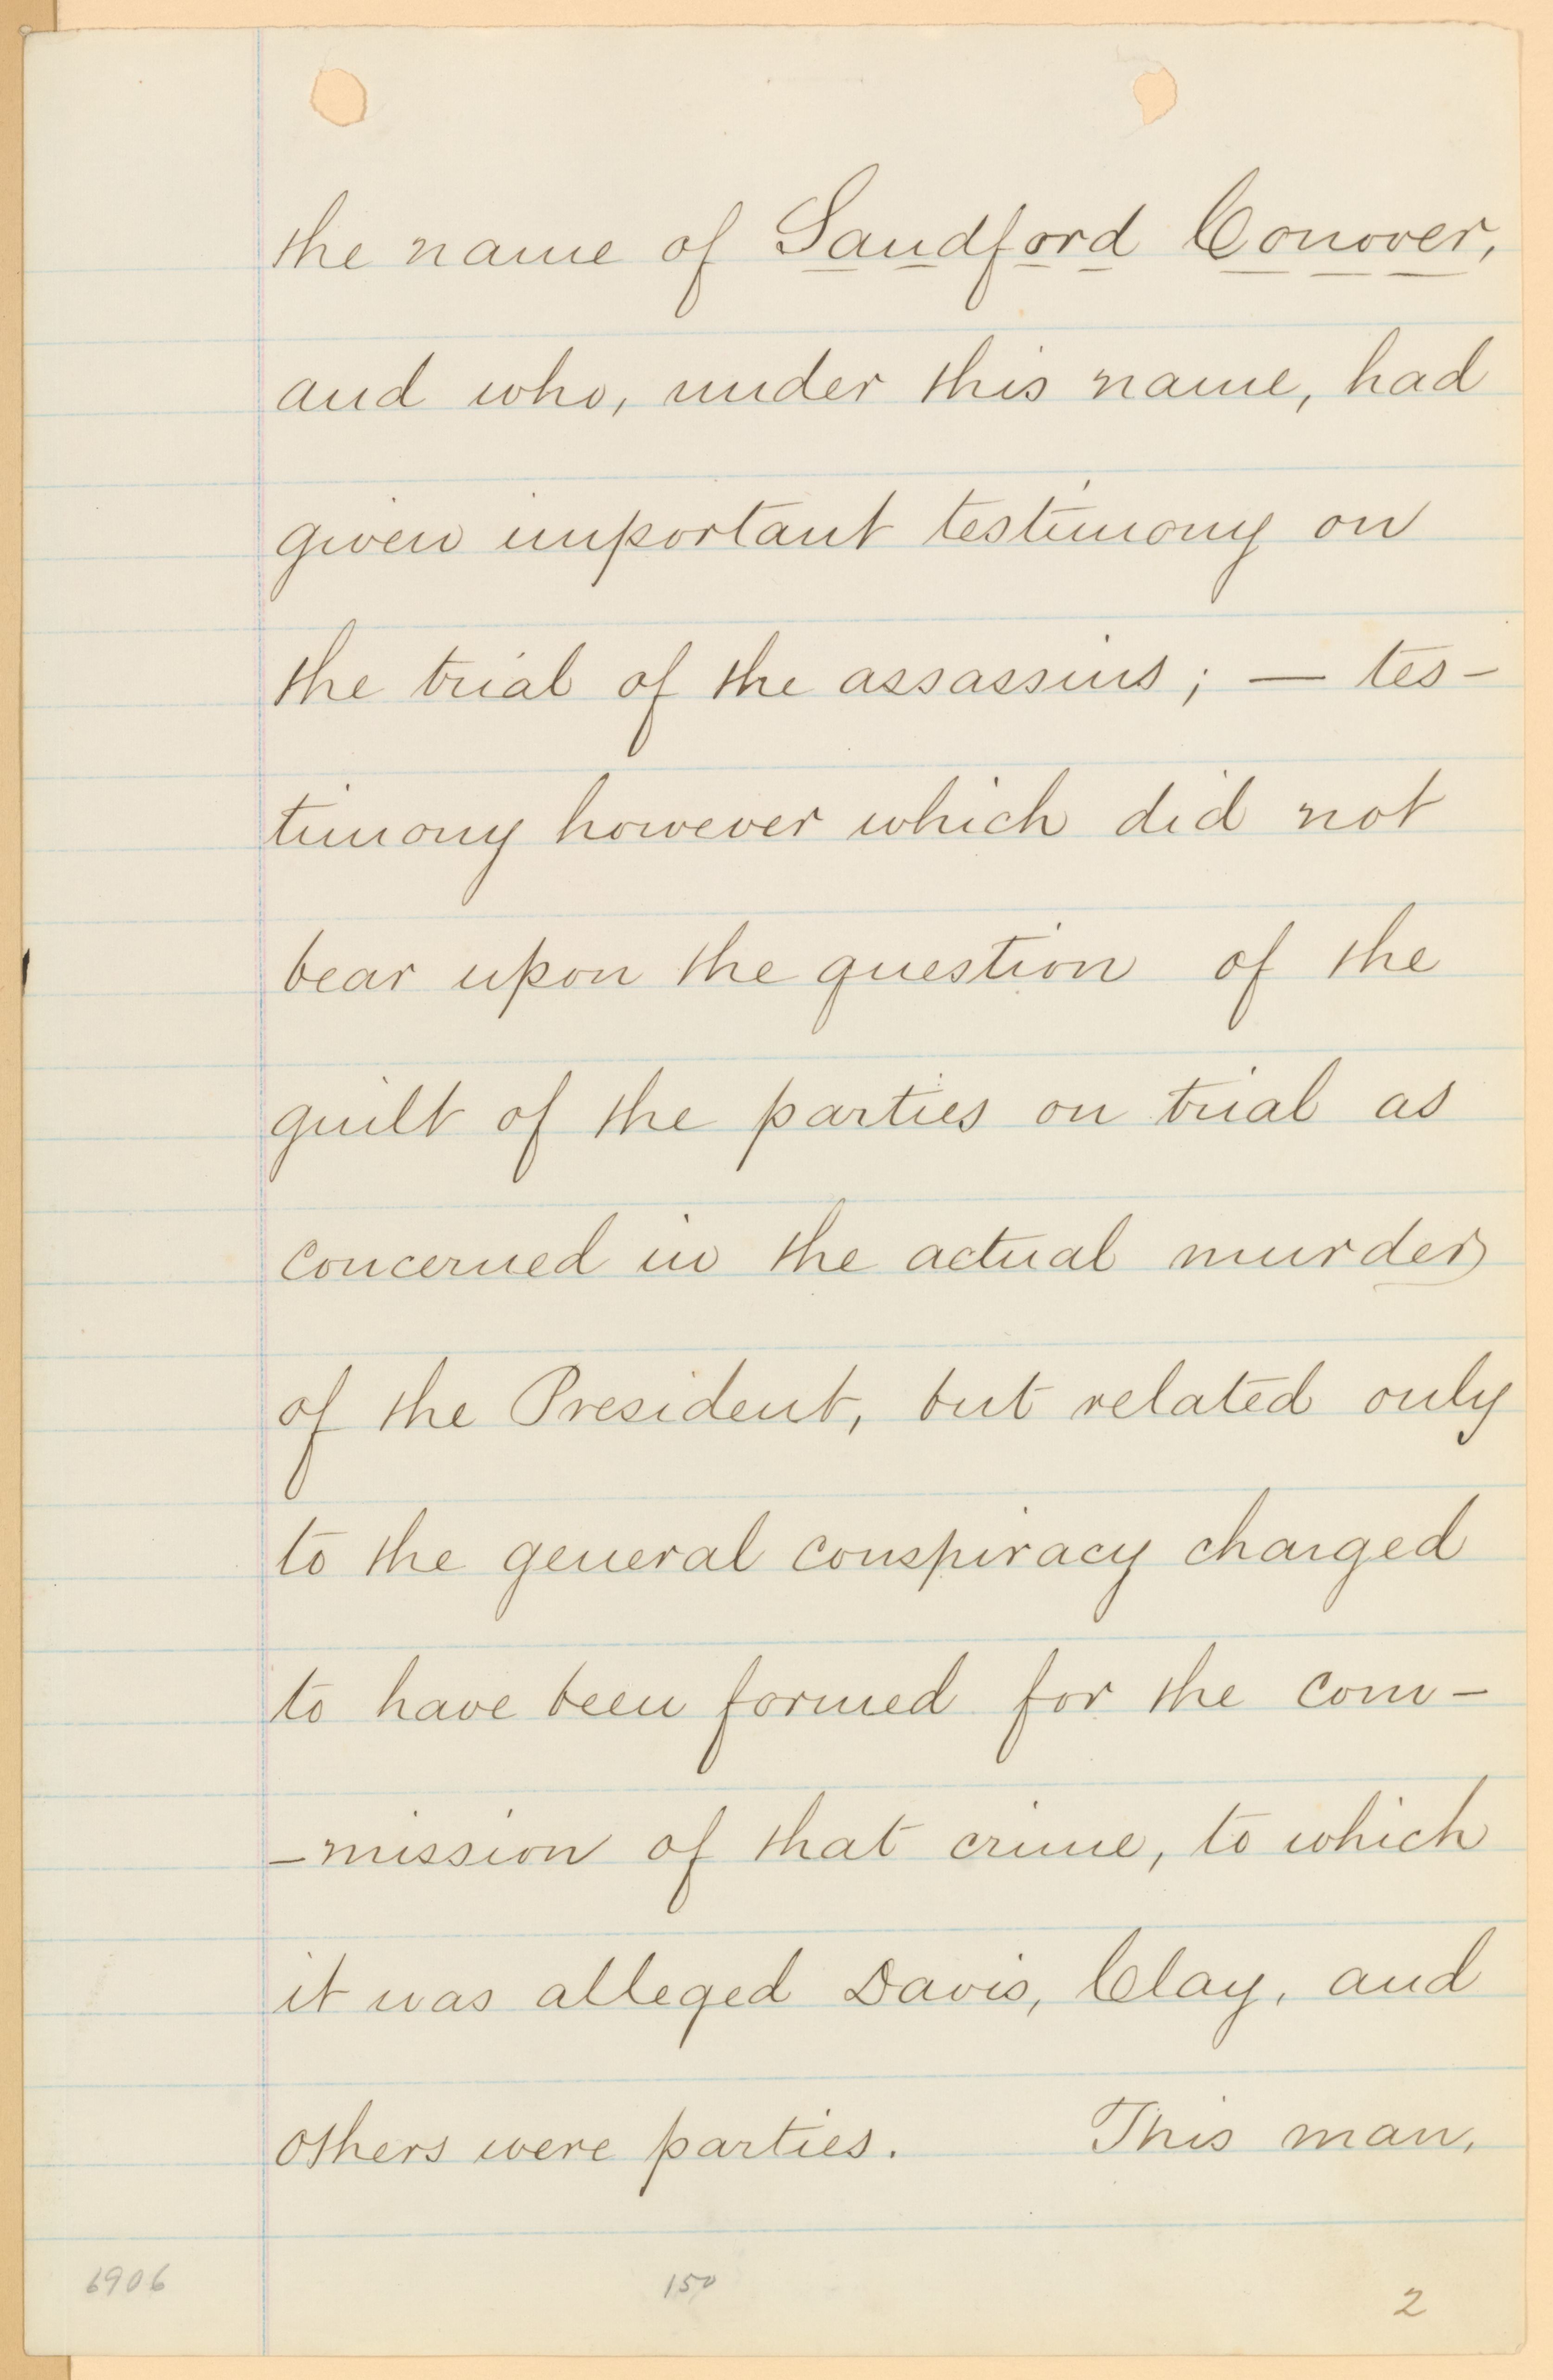 the name of Sandford Conover,
and who, under this name, had
given important testimony on
the trial of the assassins; — tes-
timony however which did not
bear upon the question of the
guilt of the parties on trial as
concerned in the actual murder
of the President, but related only
to the general conspiracy charged
to have been formed for the com-
-mission of that crime, to which
it was alleged Davis, Clay, and
others were parties. This man,
6906 150 2